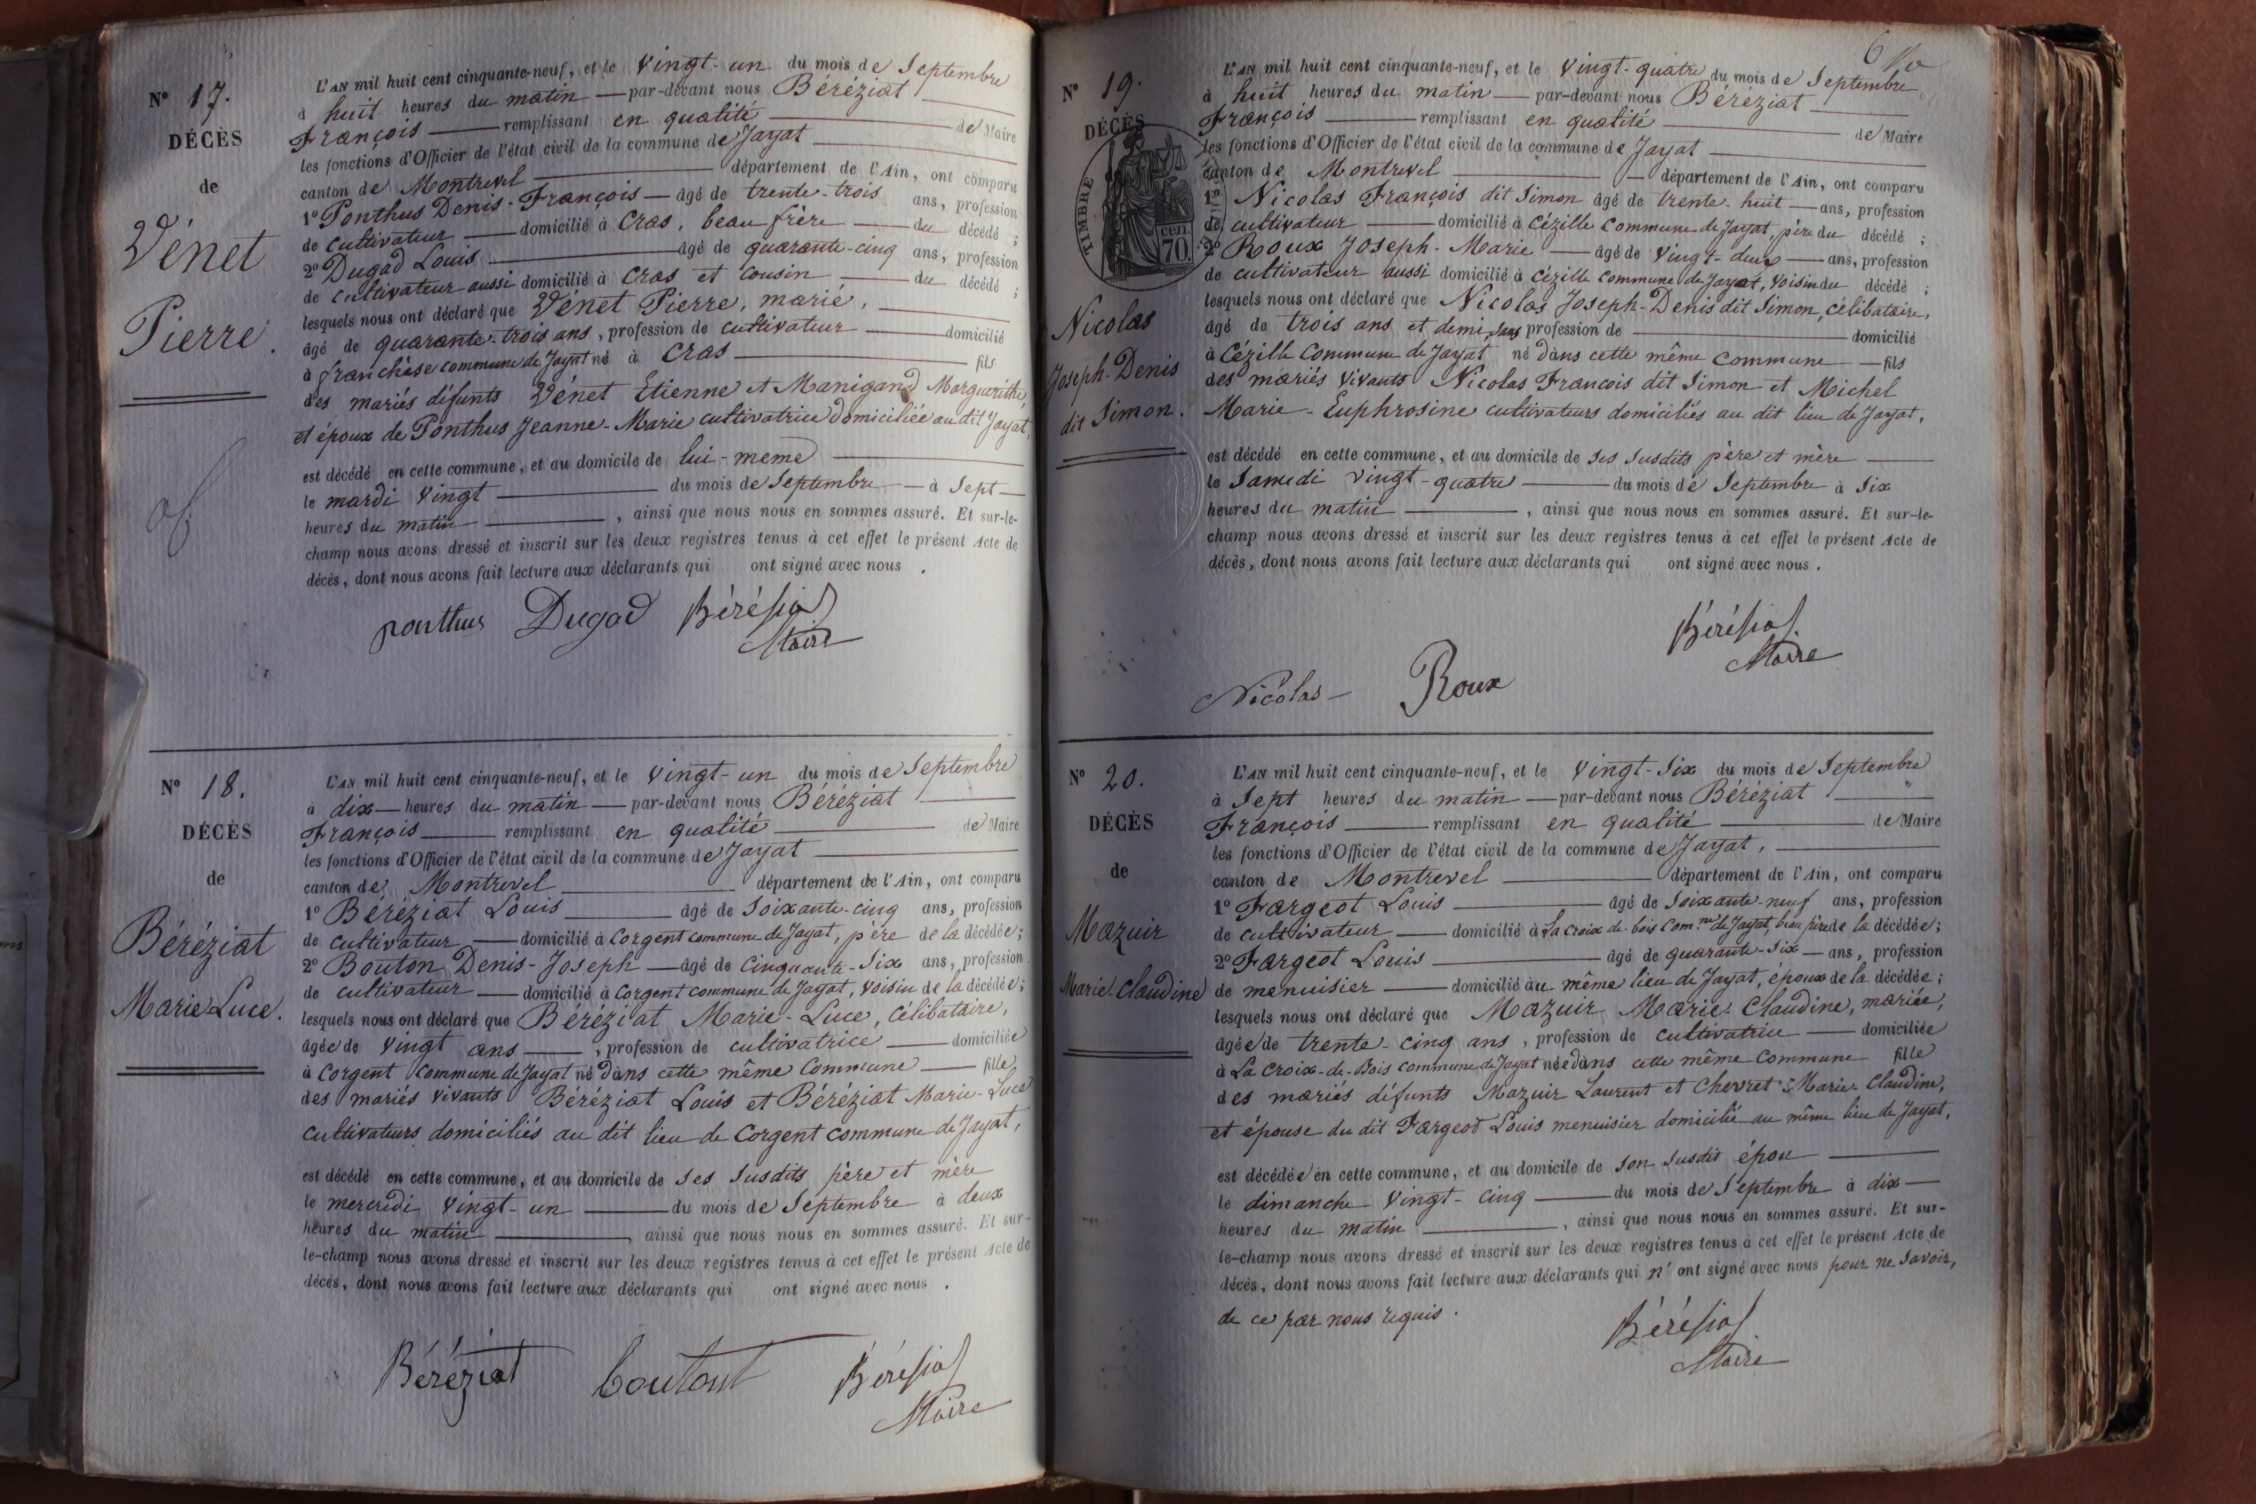 N° 17.
DÉCÈS
de
Vénet
Pierre.
L'AN mil huit cent cinquante-neuf, et le vingt-un du mois de Septembre
à huit heures du matin par-devant nous Béréziat
François remplissant en qualité de Maire
les fonctions d'Officier de l'état civil de la commune de Jayat
canton de Montrevel département de l'Ain, ont comparu
1° Ponthus Denis-François âgé de trente-trois ans, profession
de cultivateur domicilié à Cras, beau frère du décédé ;
2° Dugad Louis âgé de quarante-cinq ans, profession
de cultivateur aussi domicilié à Cras et cousin du décédé ;
lesquels nous ont déclaré que Vénet Pierre, marié,
âgé de quarante-trois ans, profession de cultivateur domicilié
à franchise commune de Jayat né à Cras fils
des mariés défunts Vénet Etienne et Manigand Marguerithe,
et époux de Ponthus Jeanne-Marie cultivatrice domiciliée au dit Jayat,
est décédé en cette commune, et au domicile de lui-meme
le mardi vingt du mois de Septembre à Sept
heures du matin, ainsi que nous nous en sommes assuré. Et sur-le-
champ nous avons dressé et inscrit sur les deux registres tenus à cet effet le présent Acte de
décès, dont nous avons fait lecture aux déclarants qui ont signé avec nous .
ponthus Dugad Béréziat
Maire
N° 18.
DÉCÈS
de
Béréziat
Marie Luce.
L'AN mil huit cent cinquante-neuf, et le vingt-un du mois de Septembre
à dix heures du matin par-devant nous Béréziat
François remplissant en qualité de Maire
les fonctions d'Officier de l'état civil de la commune de Jayat
canton de Montrevel département de l'Ain, ont comparu
1° Béréziat Louis âgé de Soixante-cinq ans, profession
de cultivateur domicilié à Corgent commune de Jayat, père de la décédée ;
2° Bouton Denis-Joseph âgé de Cinquante-Six ans, profession
de cultivateur domicilié à Corgent commune de Jayat, voisin de la décédée ;
lesquels nous ont déclaré que Béréziat Marie-Luce, célibataire,
âgée de vingt ans, profession de cultivatrice domiciliée
à Corgent commune de Jayat né dans cette même commune fille
des mariés vivants Béréziat Louis et Béréziat Marie-Luce
cultivateurs domiciliés au dit lieu de Corgent commune de Jayat,
est décédé en cette commune, et au domicile de ses susdits père et mère
le mercredi vingt-un du mois de Septembre à deux
heures du matin, ainsi que nous nous en sommes assuré. Et sur-
le-champ nous avons dressé et inscrit sur les deux registres tenus à cet effet le présent Acte de
décès, dont nous avons fait lecture aux déclarants qui ont signé avec nous .
Béréziat boutont Béréziat
Maire
N° 19.
DÉCÈS
TIMBRE
cen.
70
Nicolas
Joseph-Denis
dit Simon.
L'AN mil huit cent cinquante-neuf, et le vingt-quatre du mois de Septembre
à huit heures du matin par-devant nous Béréziat
François remplissant en qualité de Maire
les fonctions d'Officier de l'état civil de la commune de Jayat
canton de Montrevel département de l'Ain, ont comparu
1° Nicolas François dit Simon âgé de trente-huit ans, profession
de cultivateur domicilié à Cézille commune de Jayat, père du décédé ;
2° Roux Joseph-Marie âgé de vingt-deux ans, profession
de cultivateur aussi domicilié à Cézille commune de Jayat, voisin du décédé ;
lesquels nous ont déclaré que Nicolas Joseph-Denis dit Simon, célibataire,
âgé de trois ans et demi, sans profession de domicilié
à Cézille commune de Jayat né dans cette même commune fils
des mariés vivants Nicolas Francois dit Simon et Michel
Marie-Euphrosine cultivateurs domiciliés au dit lieu de Jayat,
est décédé en cette commune, et au domicile de ses susdits père et mère
le Samedi vingt-quatre du mois de Septembre à Six
heures du matin, ainsi que nous nous en sommes assuré. Et sur-le-
champ nous avons dressé et inscrit sur les deux registres tenus à cet effet le présent Acte de
décès, dont nous avons fait lecture aux déclarants qui ont signé avec nous .
Béréziat
Maire
Nicolas Roux
N° 20.
DÉCÈS
de
Mazuir
Marie Claudine
L'AN mil huit cent cinquante-neuf, et le vingt-Six du mois de Septembre
à Sept heures du matin par-devant nous Béréziat
François remplissant en qualité de Maire
les fonctions d'Officier de l'état civil de la commune de Jayat,
canton de Montrevel département de l'Ain, ont comparu
1° Fargeot Louis âgé de Soixante-neuf ans, profession
de cultivateur domicilié à La croix de bois Com.ne de Jayat, beau père de la décédée ;
2° Fargeot Louis âgé de quarante-Six ans, profession
de menuisier domicilié au même lieu de Jayat, époux de la décédée ;
lesquels nous ont déclaré que Mazuir Marie-Claudine, mariée,
âgée de trente-cinq ans, profession de cultivatrice domiciliée
à La Croix-de-Bois commune de Jayat née dans cette même commune fille
des mariés défunts Mazuir Laurent et Chevret Marie-Claudine,
et épouse du dit Fargeot Louis menuisier domicilié au même lieu de Jayat,
est décédée en cette commune, et au domicile de son susdit épou
le dimanche vingt-cinq du mois de Septembre à dix
heures du matin, ainsi que nous nous en sommes assuré. Et sur-
le-champ nous avons dressé et inscrit sur les deux registres tenus à cet effet le présent Acte de
décès, dont nous avons fait lecture aux déclarants qui n'ont signé avec nous pour ne savoir,
de ce par nous requis.
Béréziat
Maire